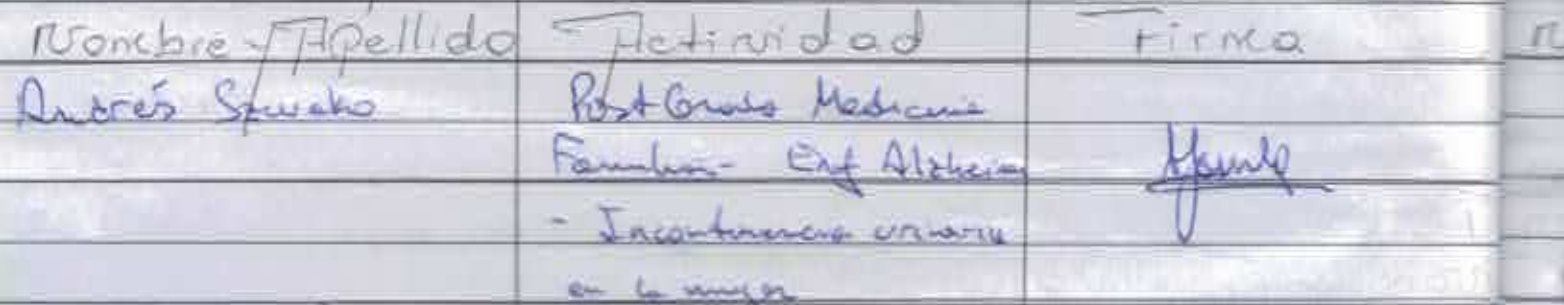 Nombre y Apellido Actividad Firma
Andrés Szwako Post Grado Medicina
Familiar - Enf Alzheim
- Incontinencia urinaria
en la mujer